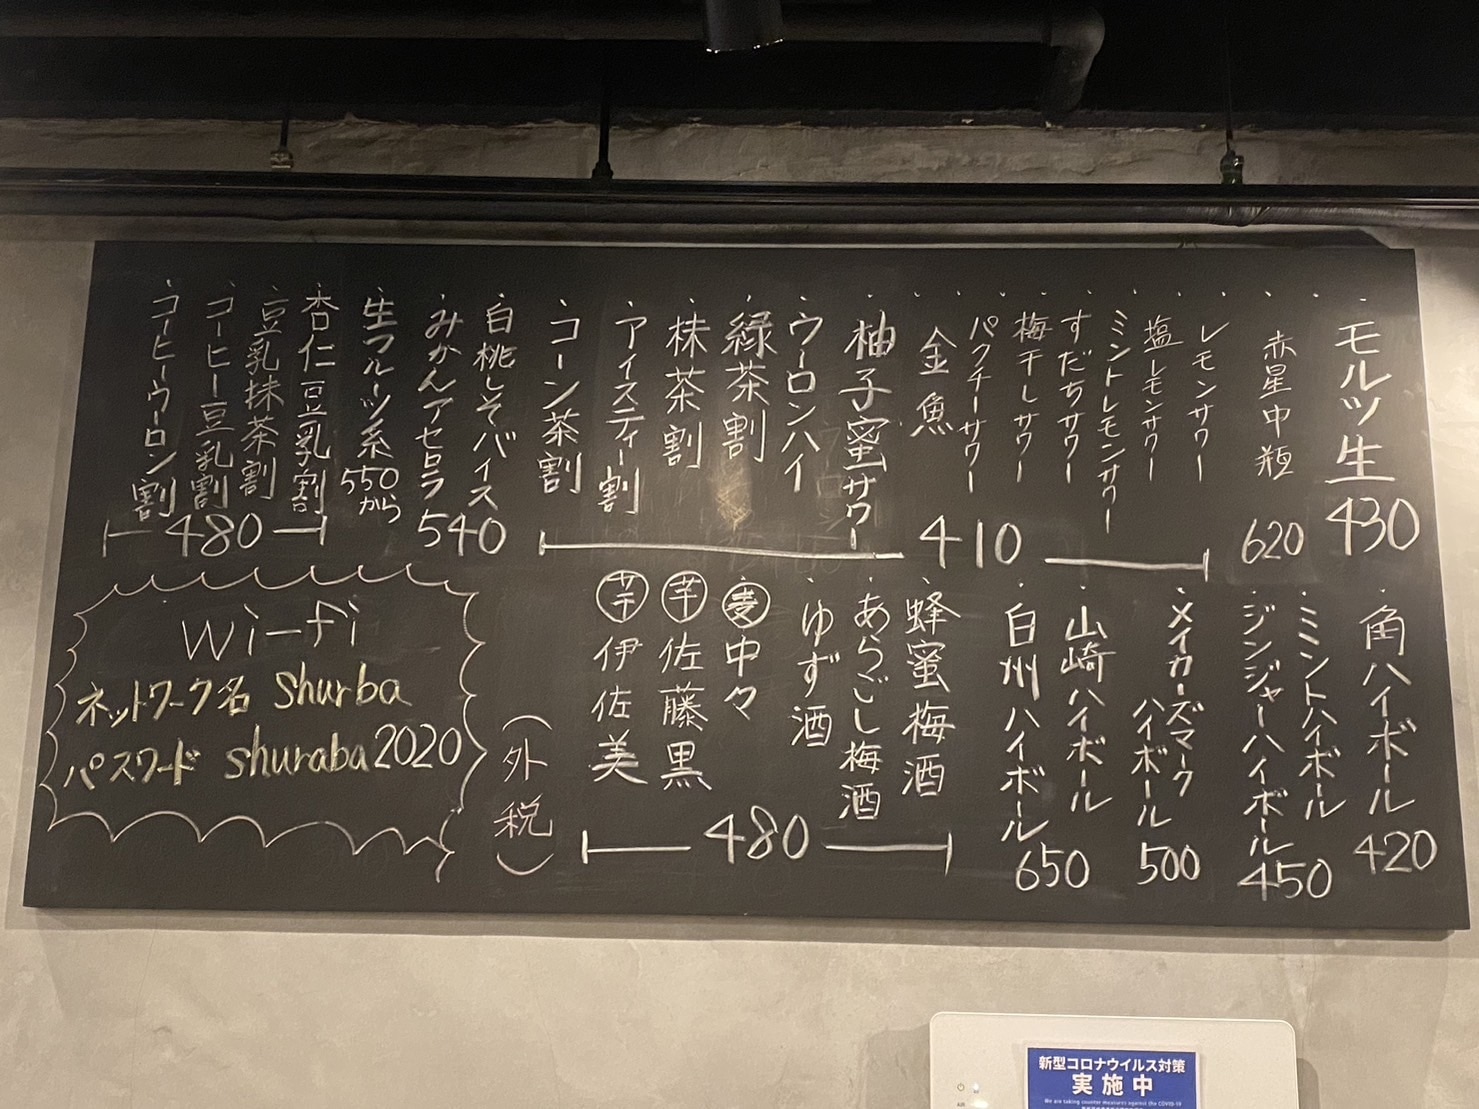 ・モルツ生 430
・赤星中瓶 620
・レモンサワー
・塩レモンサワー
・ミントレモンサワー
・すだちサワー
・梅干しサワー
・パクチーサワー
・金魚
・柚子蜜サワー
・ウーロンハイ
・緑茶割
・抹茶割
・アイスティー割
・コーン茶割
410
・白桃しそバイス
・みかんアセロラ
540
・生フルーツ系 550から
・杏仁豆乳割
・豆乳抹茶割
・コーヒー豆乳割
・コーヒーウーロン割
480
・角ハイボール 420
・ミントハイボール
・ジンジャーハイボール
450
・メイカーズマーク
ハイボール 500
・山崎ハイボール
・白州ハイボール
650
・蜂蜜梅酒
・あらごし梅酒
・ゆず酒
麦 中々
芋 佐藤黒
芋 伊佐美
480
(外税)
Wi-Fi
ネットワーク名 Shurba
パスワード shuraba2020
新型コロナウイルス対策
実施中
We are taking counter measures against the COVID-19